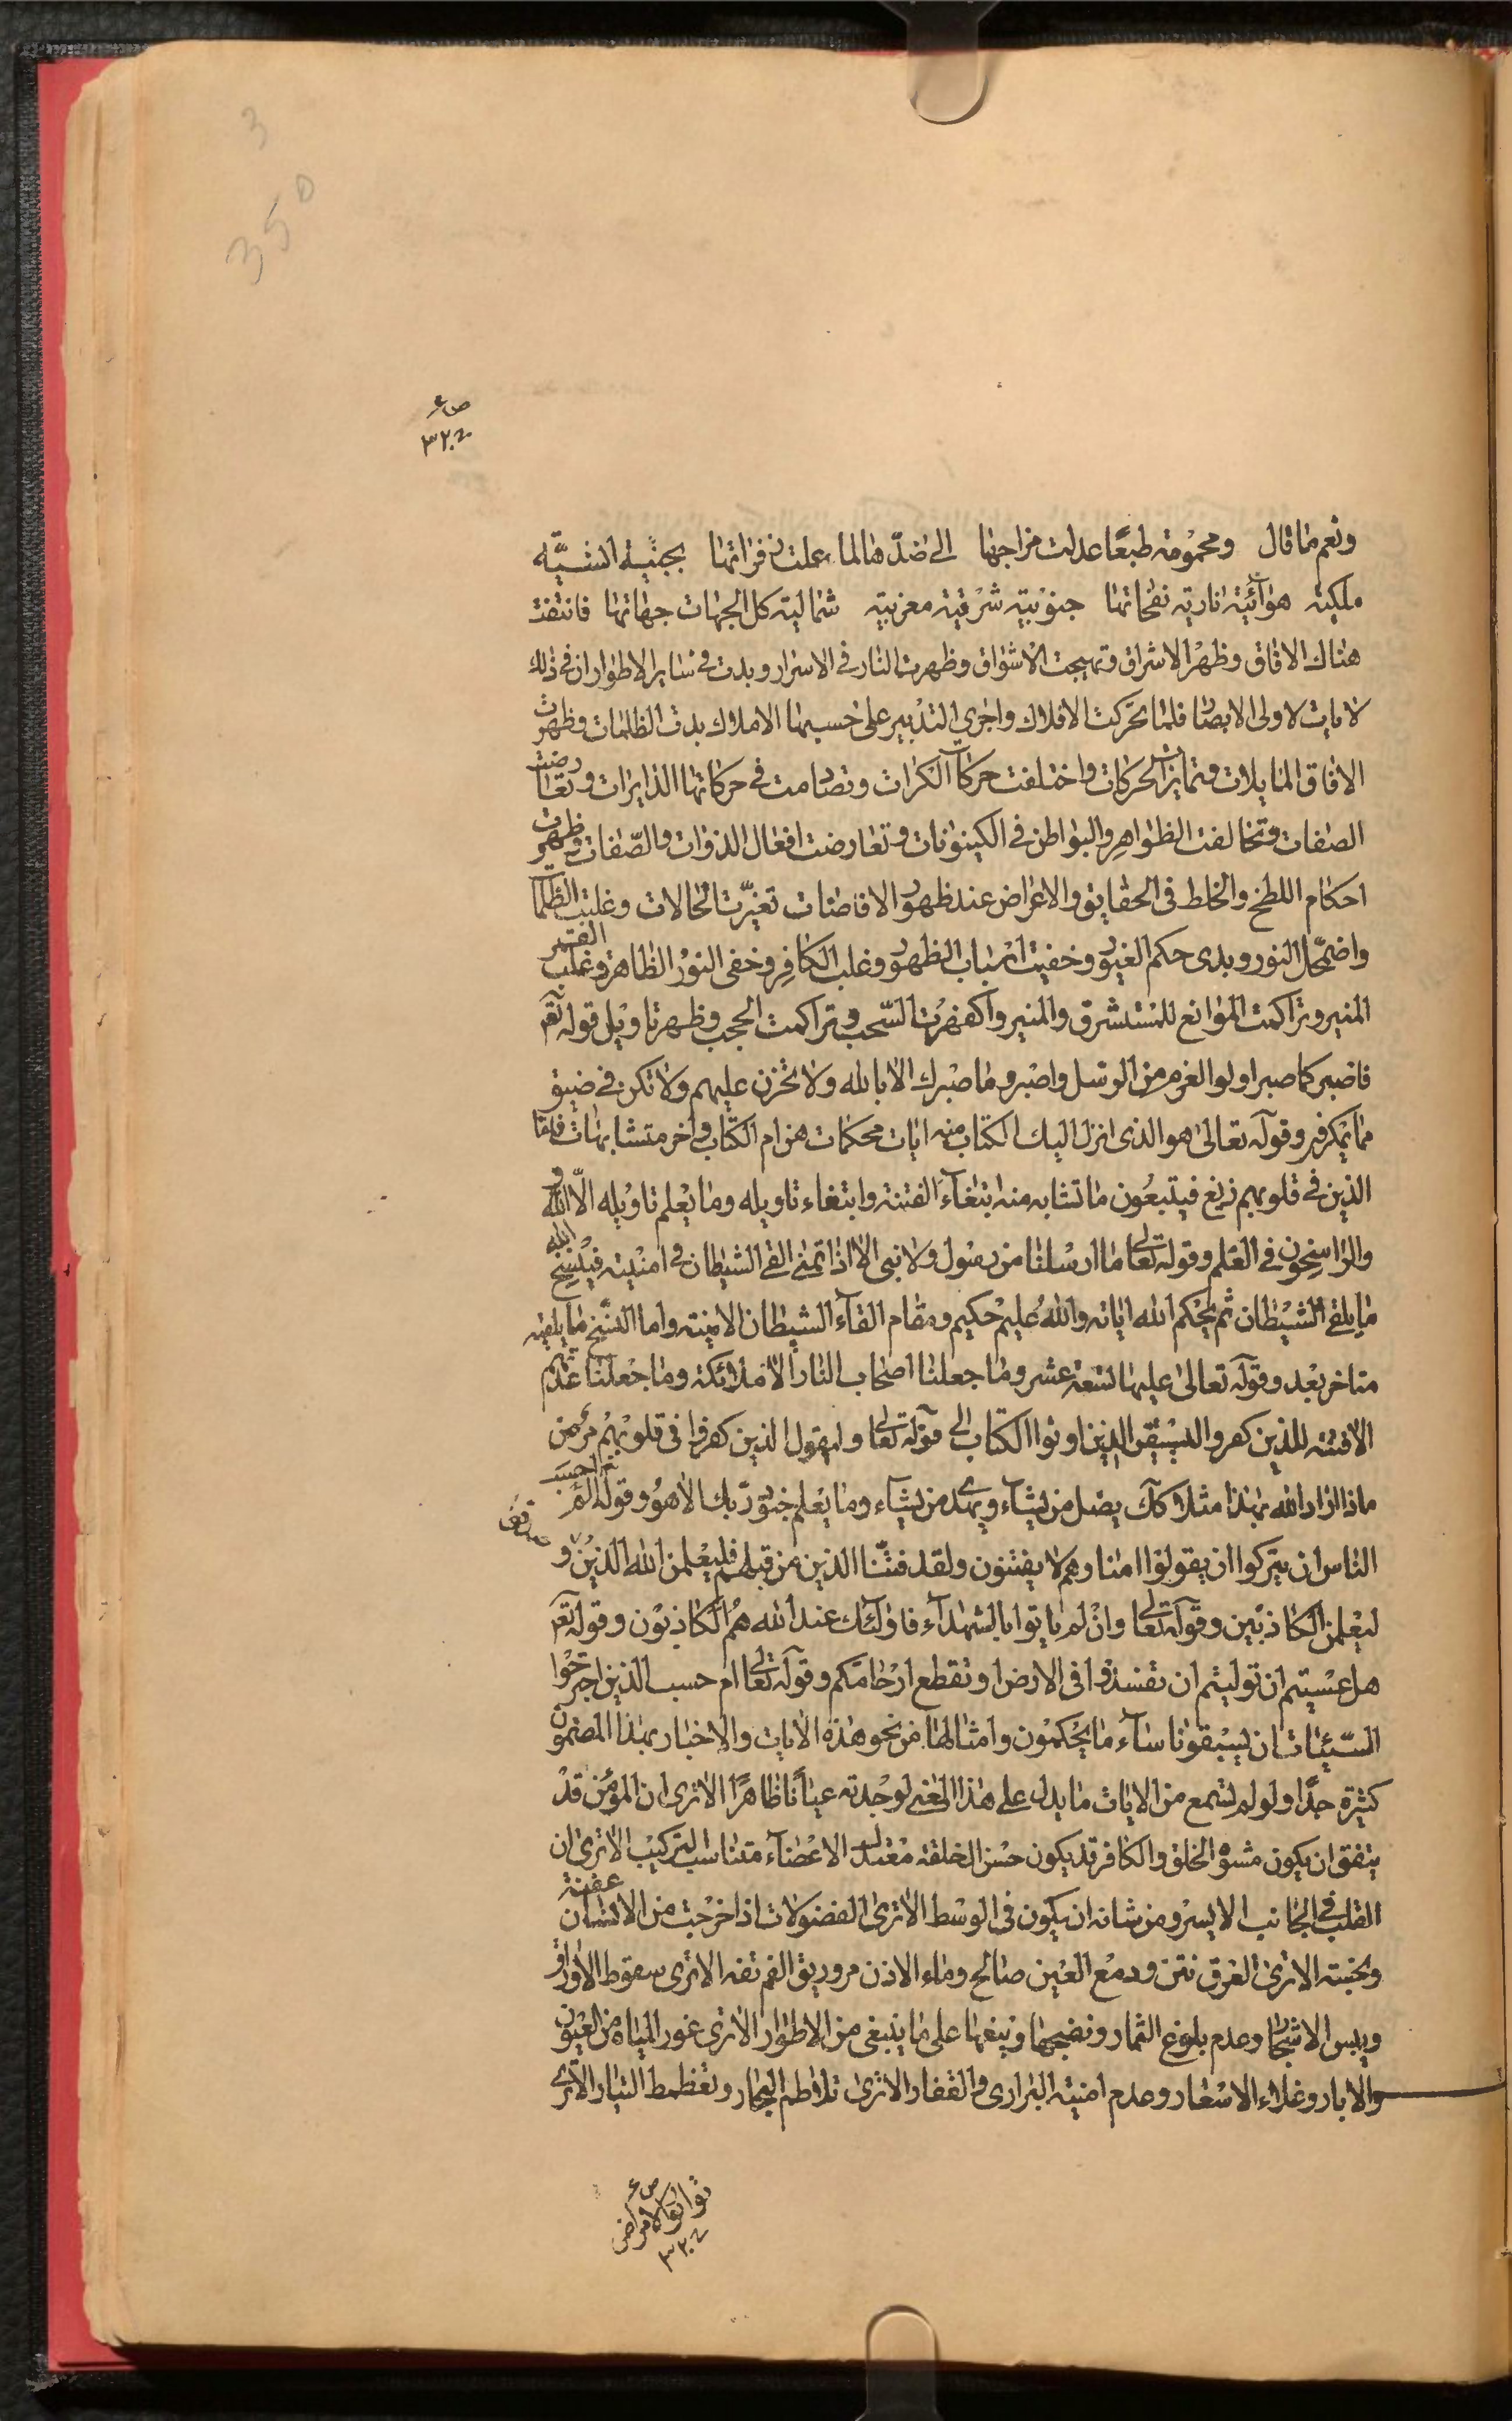 3
350
ص ع
٣٢٠٤
ونعم ما قال ومحمومة طبعًا عدلت مزاجها الى ضدها لما علت زفراتها بجنية انسية
ملكية هوائية نارية نفحاتها جنوبية شرقية مغربية شمالية كل الجهات جهاتها فانتفت
هناك الافاق وظهر الاشراق وتهيجت الاشواق وظهرت النار في الاسرار وبدت في ساير الاطوار ان في ذلك
لايات لاولى الابصار فلما تحركت الافلاك واجرى التدبير على حسبها الاملاك بدت الظلمات وظهرت
الافاق المايلات وتمايزت الحركات واختلفت حركات الكرات وتصادمت في حركاتها الدايرات وتعارضت
الصفات وتخالفت الظواهر والبواطن في الكينونات وتعارضت افعال الذوات والصفات وظهرت
احكام اللطخ والخلط في الحقايق والاعراض عند ظهور الافاضات تغيرت الحالات وغلبت الظلمات
واضمحل النور وبدى حكم الغيور وخفيت ارباب الظهور وغلب الكافر وخفى النور الظاهر وغلب القمر
المنير وتراكمت الموانع للمستشرق والمنير واكفهرت السحب وتراكمت الحجب وظهر تاويل قوله تعم
فاصبر كما صبر اولوا العزم من الرسل واصبر وما صبرك الا بالله ولا تحزن عليهم ولا تكن في ضيق
مما يمكرون وقوله تعالى هو الذى انزل اليك الكتاب منه ايات محكمات هن ام الكتاب واخر متشابهات فاما
الذين في قلوبهم زيغ فيتبعون ما تشابه منه ابتغاء الفتنة وابتغاء تاويله وما يعلم تاويله الا الله
والراسخون في العلم وقوله تعالى ما ارسلنا من رسول ولا نبى الا اذا تمنى القى الشيطان في امنيته فينسخ الله
ما يلقى الشيطان ثم يحكم الله اياته والله عليم حكيم ومقام القاء الشيطان الامنية واما النسخ ما يلقيه
متاخر بعد وقوله تعالى عليها تسعة عشر وما جعلنا اصحاب النار الا ملائكة وما جعلنا عدتهم
الا فتنة للذين كفروا ليستيقن الذين اوتوا الكتاب الى قوله تعالى وليقول الذين كفروا في قلوبهم مرض
ماذا اراد الله بهذا مثلا كك يضل من يشاء ويهدى من يشاء وما يعلم جنود ربك الا هو وقوله الم احسب
الناس ان يتركوا ان يقولوا امنا وهم لا يفتنون ولقد فتنا الذين من قبلهم فليعلمن الله الذين صدقوا و
ليعلمن الكاذبين وقوله تعالى وان لم ياتوا بالشهداء فاولئك عند الله هم الكاذبون وقوله تعم
هل عسيتم ان توليتم ان تفسدوا في الارض او تقطع ارحامكم وقوله تعالى ام حسب الذين اجترحوا
السيئات ان يسبقونا ساء ما يحكمون وامثالها من نحو هذه الايات والاخبار بهذا المضمون
كثيرة جدًا ولو لم تسمع من الايات ما يدل على هذا المعنى لوجدته عيانًا ظاهرًا الا ترى ان المؤمن قد
يتفق ان يكون مشوه الخلق والكافر قد يكون حسن الخلقة معتدل الاعضاء متناسب التركيب الا ترى ان
القلب في الجانب الايسر ومن شانه ان يكون في الوسط الا ترى الفضولات اذا خرجت من الانسان عفنة
ونجسة الا ترى العرق نتن ودمع العين صالح وماء الاذن مر وريق الفم تفه الا ترى سقوط الاوراق
ويبس الاشجار وعدم بلوغ الثمار ونضجها وينعها على ما ينبغى من الاطوار الا ترى غور المياه من العيون
والابار وغلاء الاسعار وعدم امنية البرارى والقفار الا ترى تلاطم البحار وتغطمط التيار الا ترى
ص ع
تواتر الامراض
٣٢٠٤